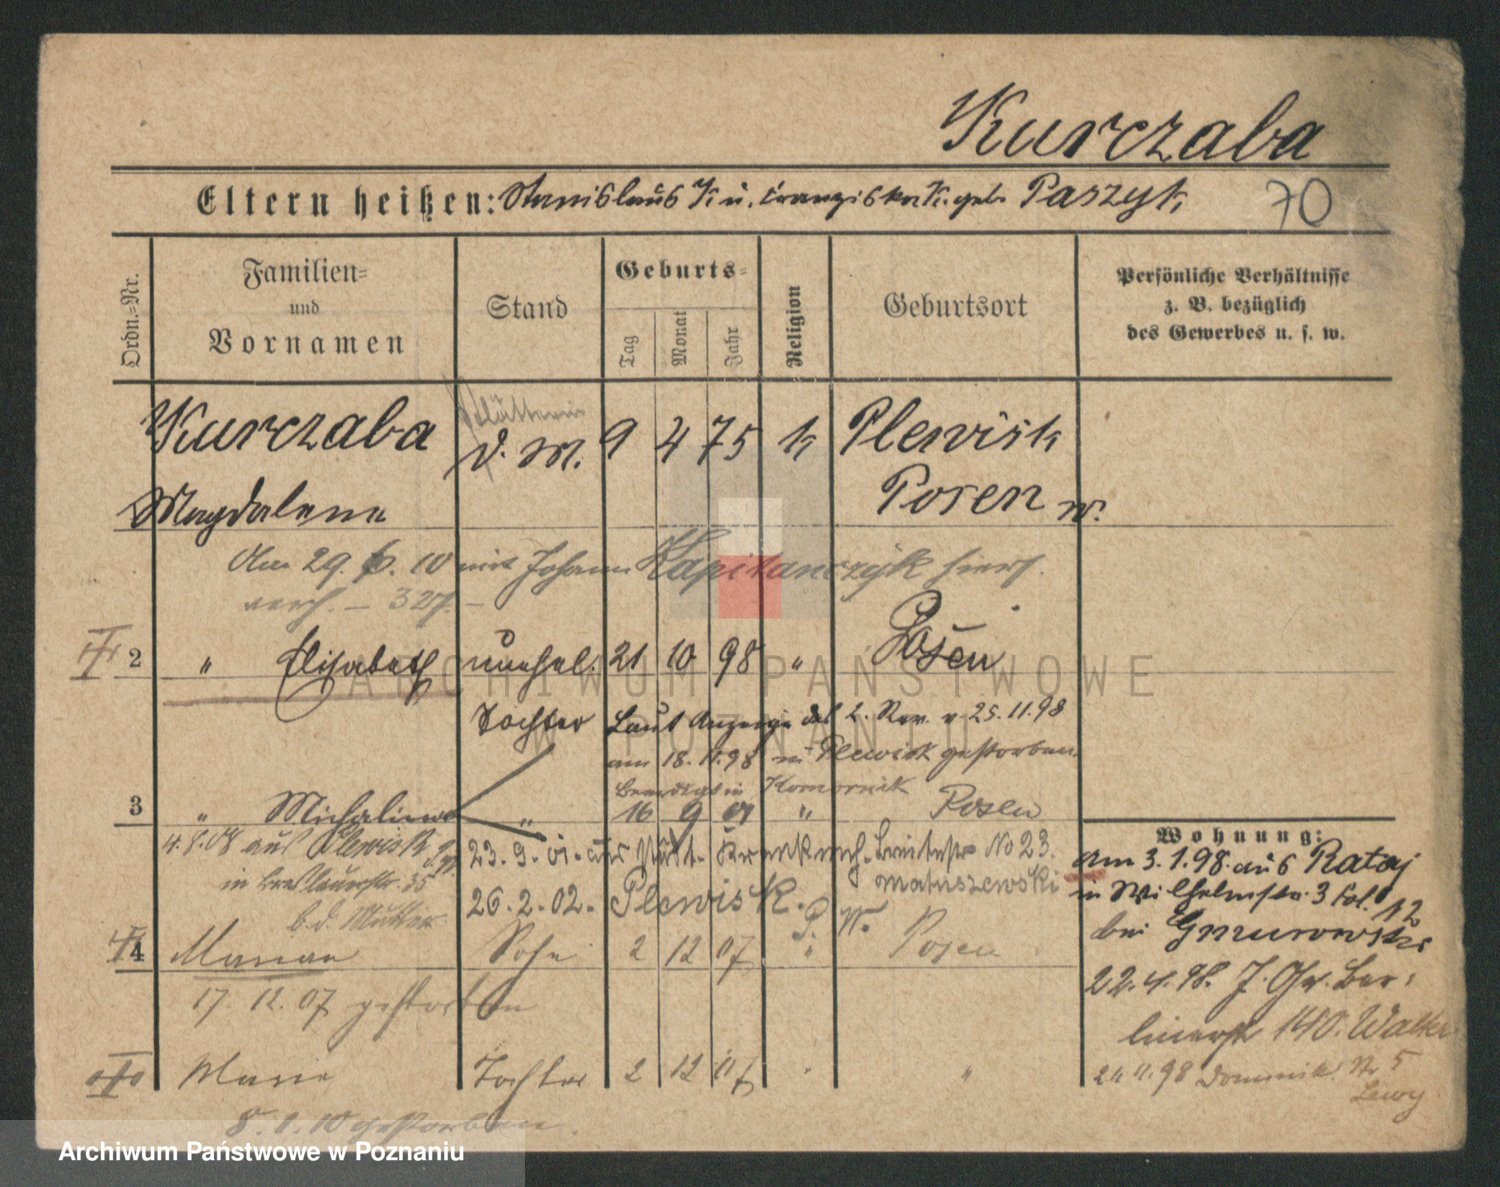 Kurczaba
Eltern heißen: Stanislaus K. u. Franziska K. geb. Paszyk
70
Ordn.=Nr.
Familien=
und
Vornamen
Stand
Geburts=
Tag
Monat
Jahr
Religion
Geburtsort
Persönliche Verhältnisse
z. B. bezüglich
des Gewerbes u. s. w.
Kurczaba
Magdalena
d. M.
9 4 75 k Plewisk
Posen W.
Am 29. 6. 10 mit Johann Kapitanczyk hier
verh. – 327. –
2 " Elisabeth unehel. 21 10 98 " Posen
Tochter Laut Anzeige des 2. Rev. v 25.11.98
am 18.11.98 in Plewisk gestorben
beerdigt in Komornik
3 " Michalina " 16 9 01 " Posen
4.8.08 aus Plewisk
in Breslauerstr. 35
b. d. Mutter
23.9.01. aus städt. Krankenh. Breitestr No 23.
Matuszewski
26.2.02. Plewisk. P. W.
4 Marian Sohn 2 12 07 " Posen
17. 12. 07 gestorben
Marie Tochter 2 12 07 "
8. 1. 10 gestorben.
Wohnung:
Am 3.1.98. aus Rataj
in Wilhelmstr. 3 Fol. 12
bei
22.4.98. J. Gr. Ber=
linerstr 140. Walter
11.98 Dominik. Nr 5
Lewy
ARCHIWUM PAŃSTWOWE
W POZNANIU
Archiwum Państwowe w Poznaniu